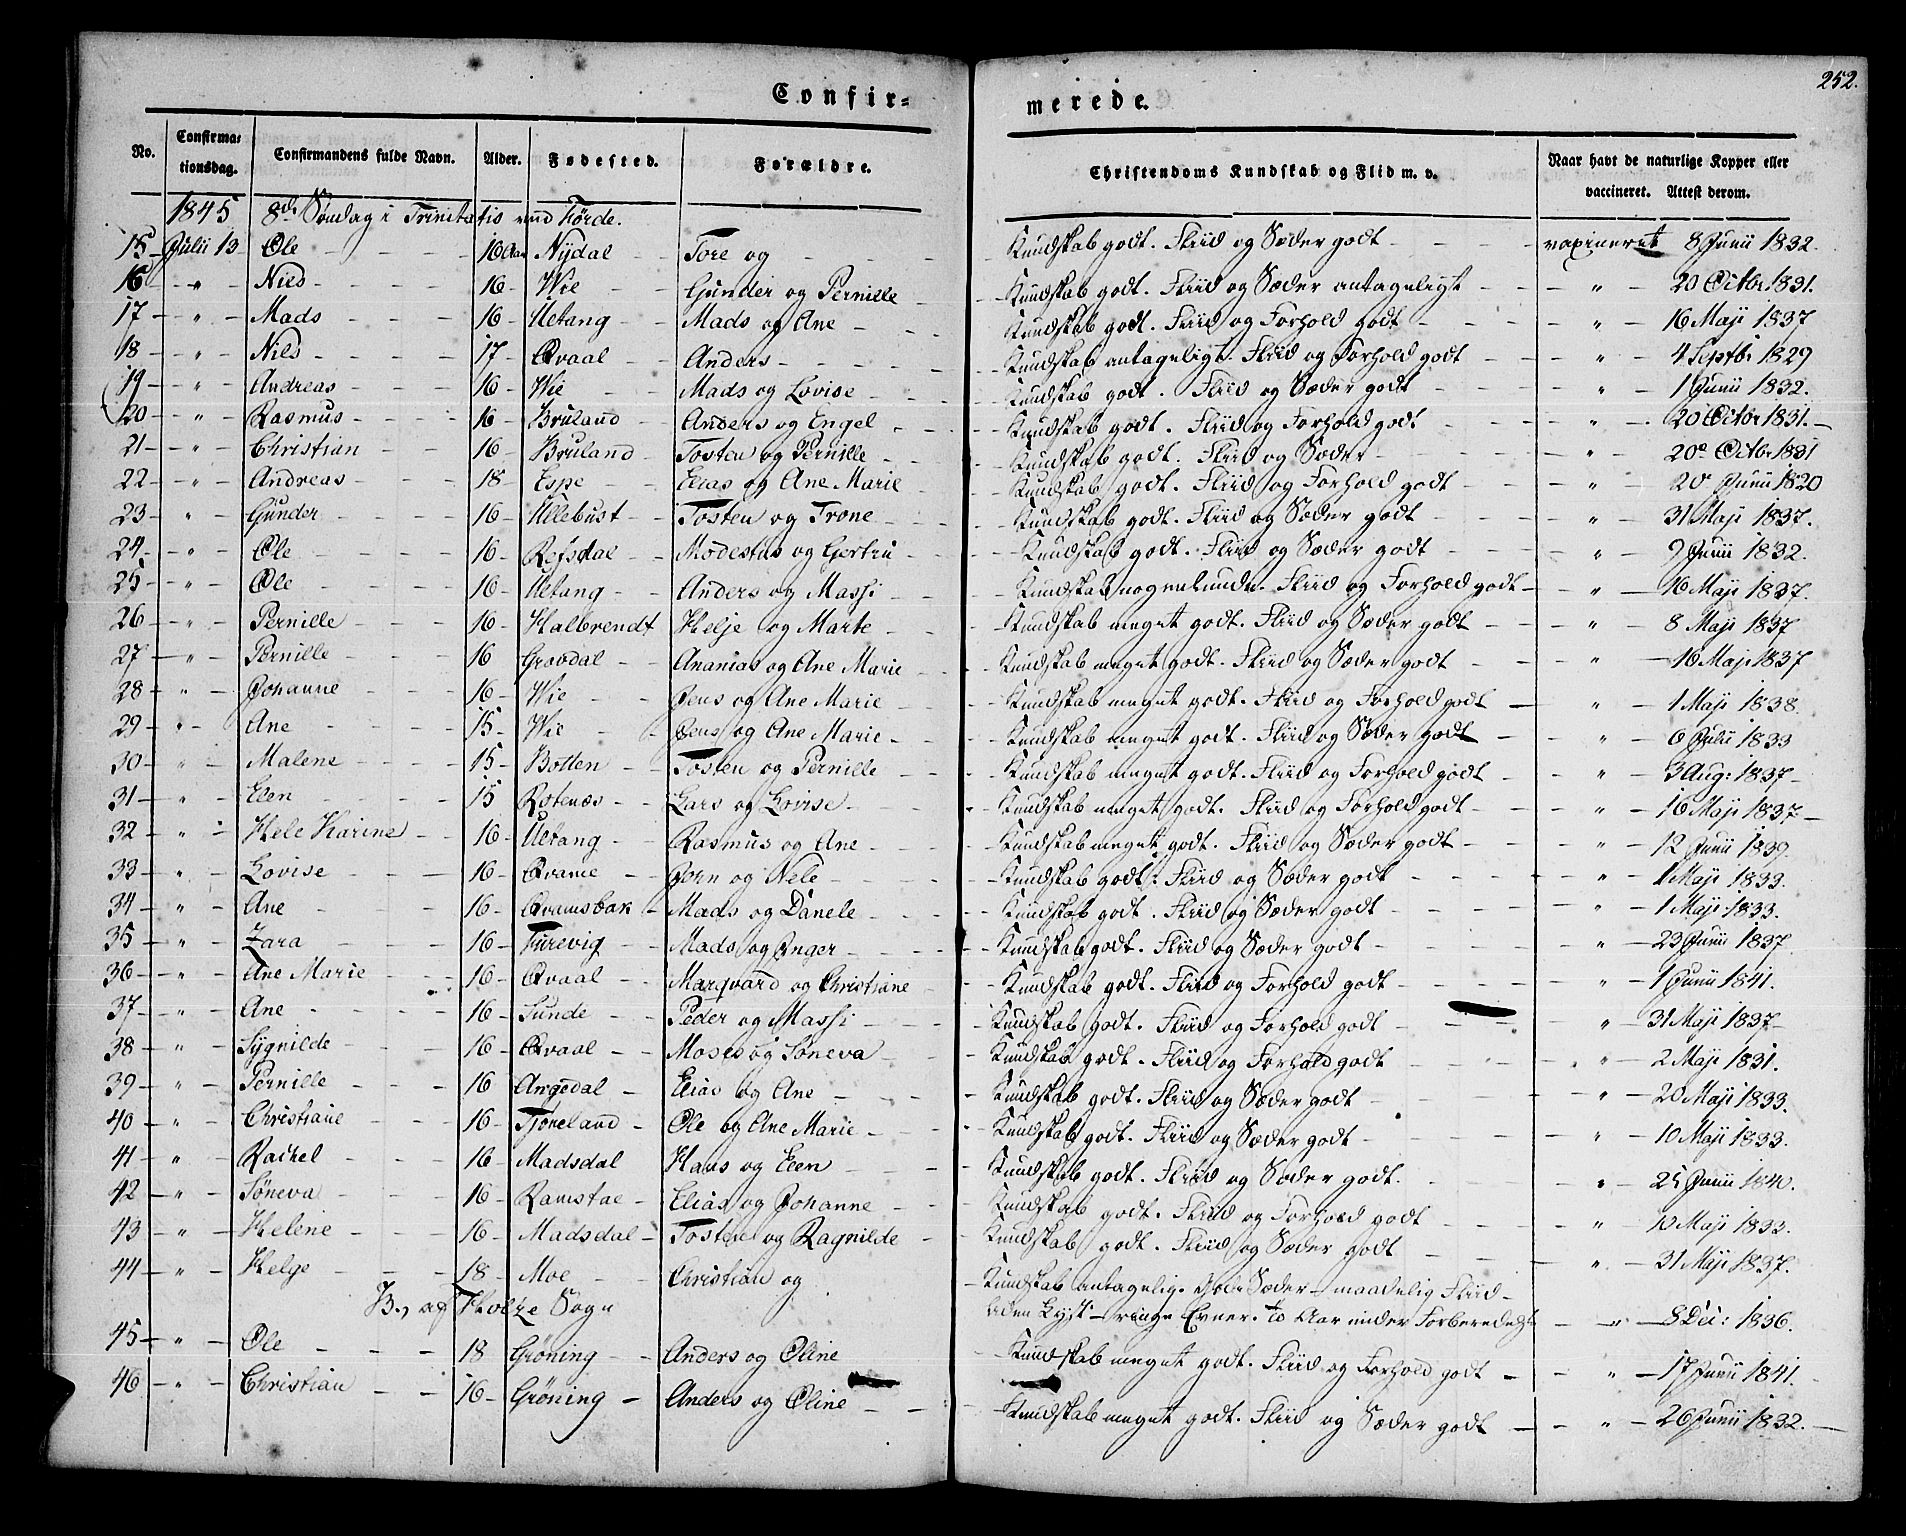 252.
Confir-
merede.
No. Confirma-tionsdag. Confirmandens fulde Navn. Alder. Fødested. Forældre. Christendoms Kundskab og Flid m. v. Naar havt de naturlige Kopper eller vaccineret. Attest derom.
1845 8de Søndag i Trinitatis ved Førde.
15 Julii 13 Ole 16 Aar Nydal Tore og Kundskab godt. Fliid og Sæder godt vaxineret 8 Junii 1832.
16 " Niels 16 Wie Gunder og Pernille Kundskab godt. Fliid og Sæder antageligt " 20 Octbr 1831.
17 " Mads 16 Uetang Mads og Ane Kundskab godt. Fliid og Forhold godt " 16 Maji 1837
18 " Nils 17 Qvaal Anders Kundskab antageligt. Fliid og Forhold godt " 4 Septbr 1829
19 " Andreas 16 Wie Mads og Lovise Kundskab godt. Fliid og Sæder godt " 1 Junii 1832.
20 " Rasmus 16 Bruland Anders og Engel Kundskab godt. Fliid og Forhold godt " 20 Octbr 1831.
21 " Christian 16 Bruland Tosten og Pernille Kundskab godt. Fliid og Sæder " 20 Octbr 1831
22 " Andreas 18 Espe Elias og Ane Marie Kundskab godt. Fliid og Forhold godt " Junii 1820
23 " Gunder 16 Ullebust Tosten og Trone Kundskab godt. Fliid og Sæder godt " 31 Maji 1837.
24 " Ole 16 Refsdal Modestus og Gertru Kundskab godt. Fliid og Sæder godt " 9 Junii 1832.
25 " Ole 16 Uetang Anders og Massi Kundskab nogenlunde. Fliid og Forhold godt " 16 Maji 1837.
26 " Pernille 16 Halbrendt Helje og Marte Kundskab meget godt. Fliid og Sæder godt " 8 Maji 1837
27 " Pernille 16 Grovdal Ananias og Ane Marie Kundskab meget godt. Fliid og Sæder godt " 16 Maji 1837
28 " Johanne 16 Wie Jens og Ane Marie Kundskab meget godt. Fliid og Forhold godt " 1 Maji 1838.
29 " Ane 15 Wie Jens og Ane Marie Kundskab meget godt. Fliid og Sæder godt " 6 Julii 1833
30 " Malene 15 Botten Tosten og Pernille Kundskab meget godt. Fliid og Forhold godt " 3 Aug: 1837
31 " Elen 15 Rotenæs Lars og Lovise Kundskab meget godt. Fliid og Forhold godt " 16 Maji 1837
32 " Hele Karine 16 Uetang Rasmus og Ane Kundskab meget godt. Fliid og Sæder godt " 12 Junii 1839.
33 " Lovise 16 Qvame Jorn og Nele Kundskab godt. Fliid og Sæder godt " 1 Maji 1833.
34 " Ane 16 Qvamsbak Mads og Danele Kundskab godt. Fliid og Sæder godt " 1 Maji 1833.
35 " Zara 16 Furevig Mads og Inger Kundskab godt. Fliid og Sæder godt " 23 Junii 1837.
36 " Ane Marie 16 Qvaal Marqvard og Christiane Kundskab godt. Fliid og Forhold godt " 1 Junii 1841.
37 " Ane 16 Sunde Peder og Massi Kundskab godt. Fliid og Forhold godt " 31 Maji 1837
38 " Sygnilde 16 Qvaal Moses og Soneva Kundskab godt. Fliid og Forhold godt " 2 Maji 1831.
39 " Pernille 16 Angedal Elias og Ane Kundskab godt. Fliid og Sæder godt " 20 Maji 1833.
40 " Christiane 16 Tjoneland Ole og Ane Marie Kundskab godt. Fliid og Sæder godt " 10 Maji 1833.
41 " Rachel 16 Madsdal Hans og Elen Kundskab godt. Fliid og Sæder godt. " 25 Junii 1840.
42 " Søneva 16 Ramstae Elias og Johanne Kundskab godt. Fliid og Forhold godt " 10 Maji 1833.
43 " Helene 16 Madsdal Tosten og Ragnilde Kundskab godt. Fliid og Sæder godt " 31 Maji 1837.
44 " Helge 18 Moe Christian og Kundskab antagelig. Gode Sæder maadelig Fliid
uden Lyst ringe Evner. to Aar under Forberedelse " 8 Dec: 1836.
B., af Holze Sogn
45 " Ole 18 Grøning Anders og Oline Kundskab meget godt. Fliid og Forhold godt " 17 Junii 1841.
46 " Christian 16 Grøning Anders og Oline Kundskab meget godt. Fliid og Sæder godt " 26 Junii 1832.